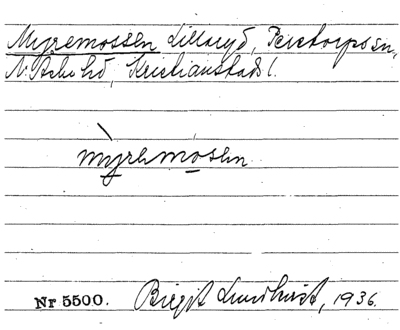 Myremossen Lillaryd, Perstorps sn,
N. Åsbo hd, Kristianstads l.
mỳremosen
Nr 5500. Birgit Lundkvist, 1936.